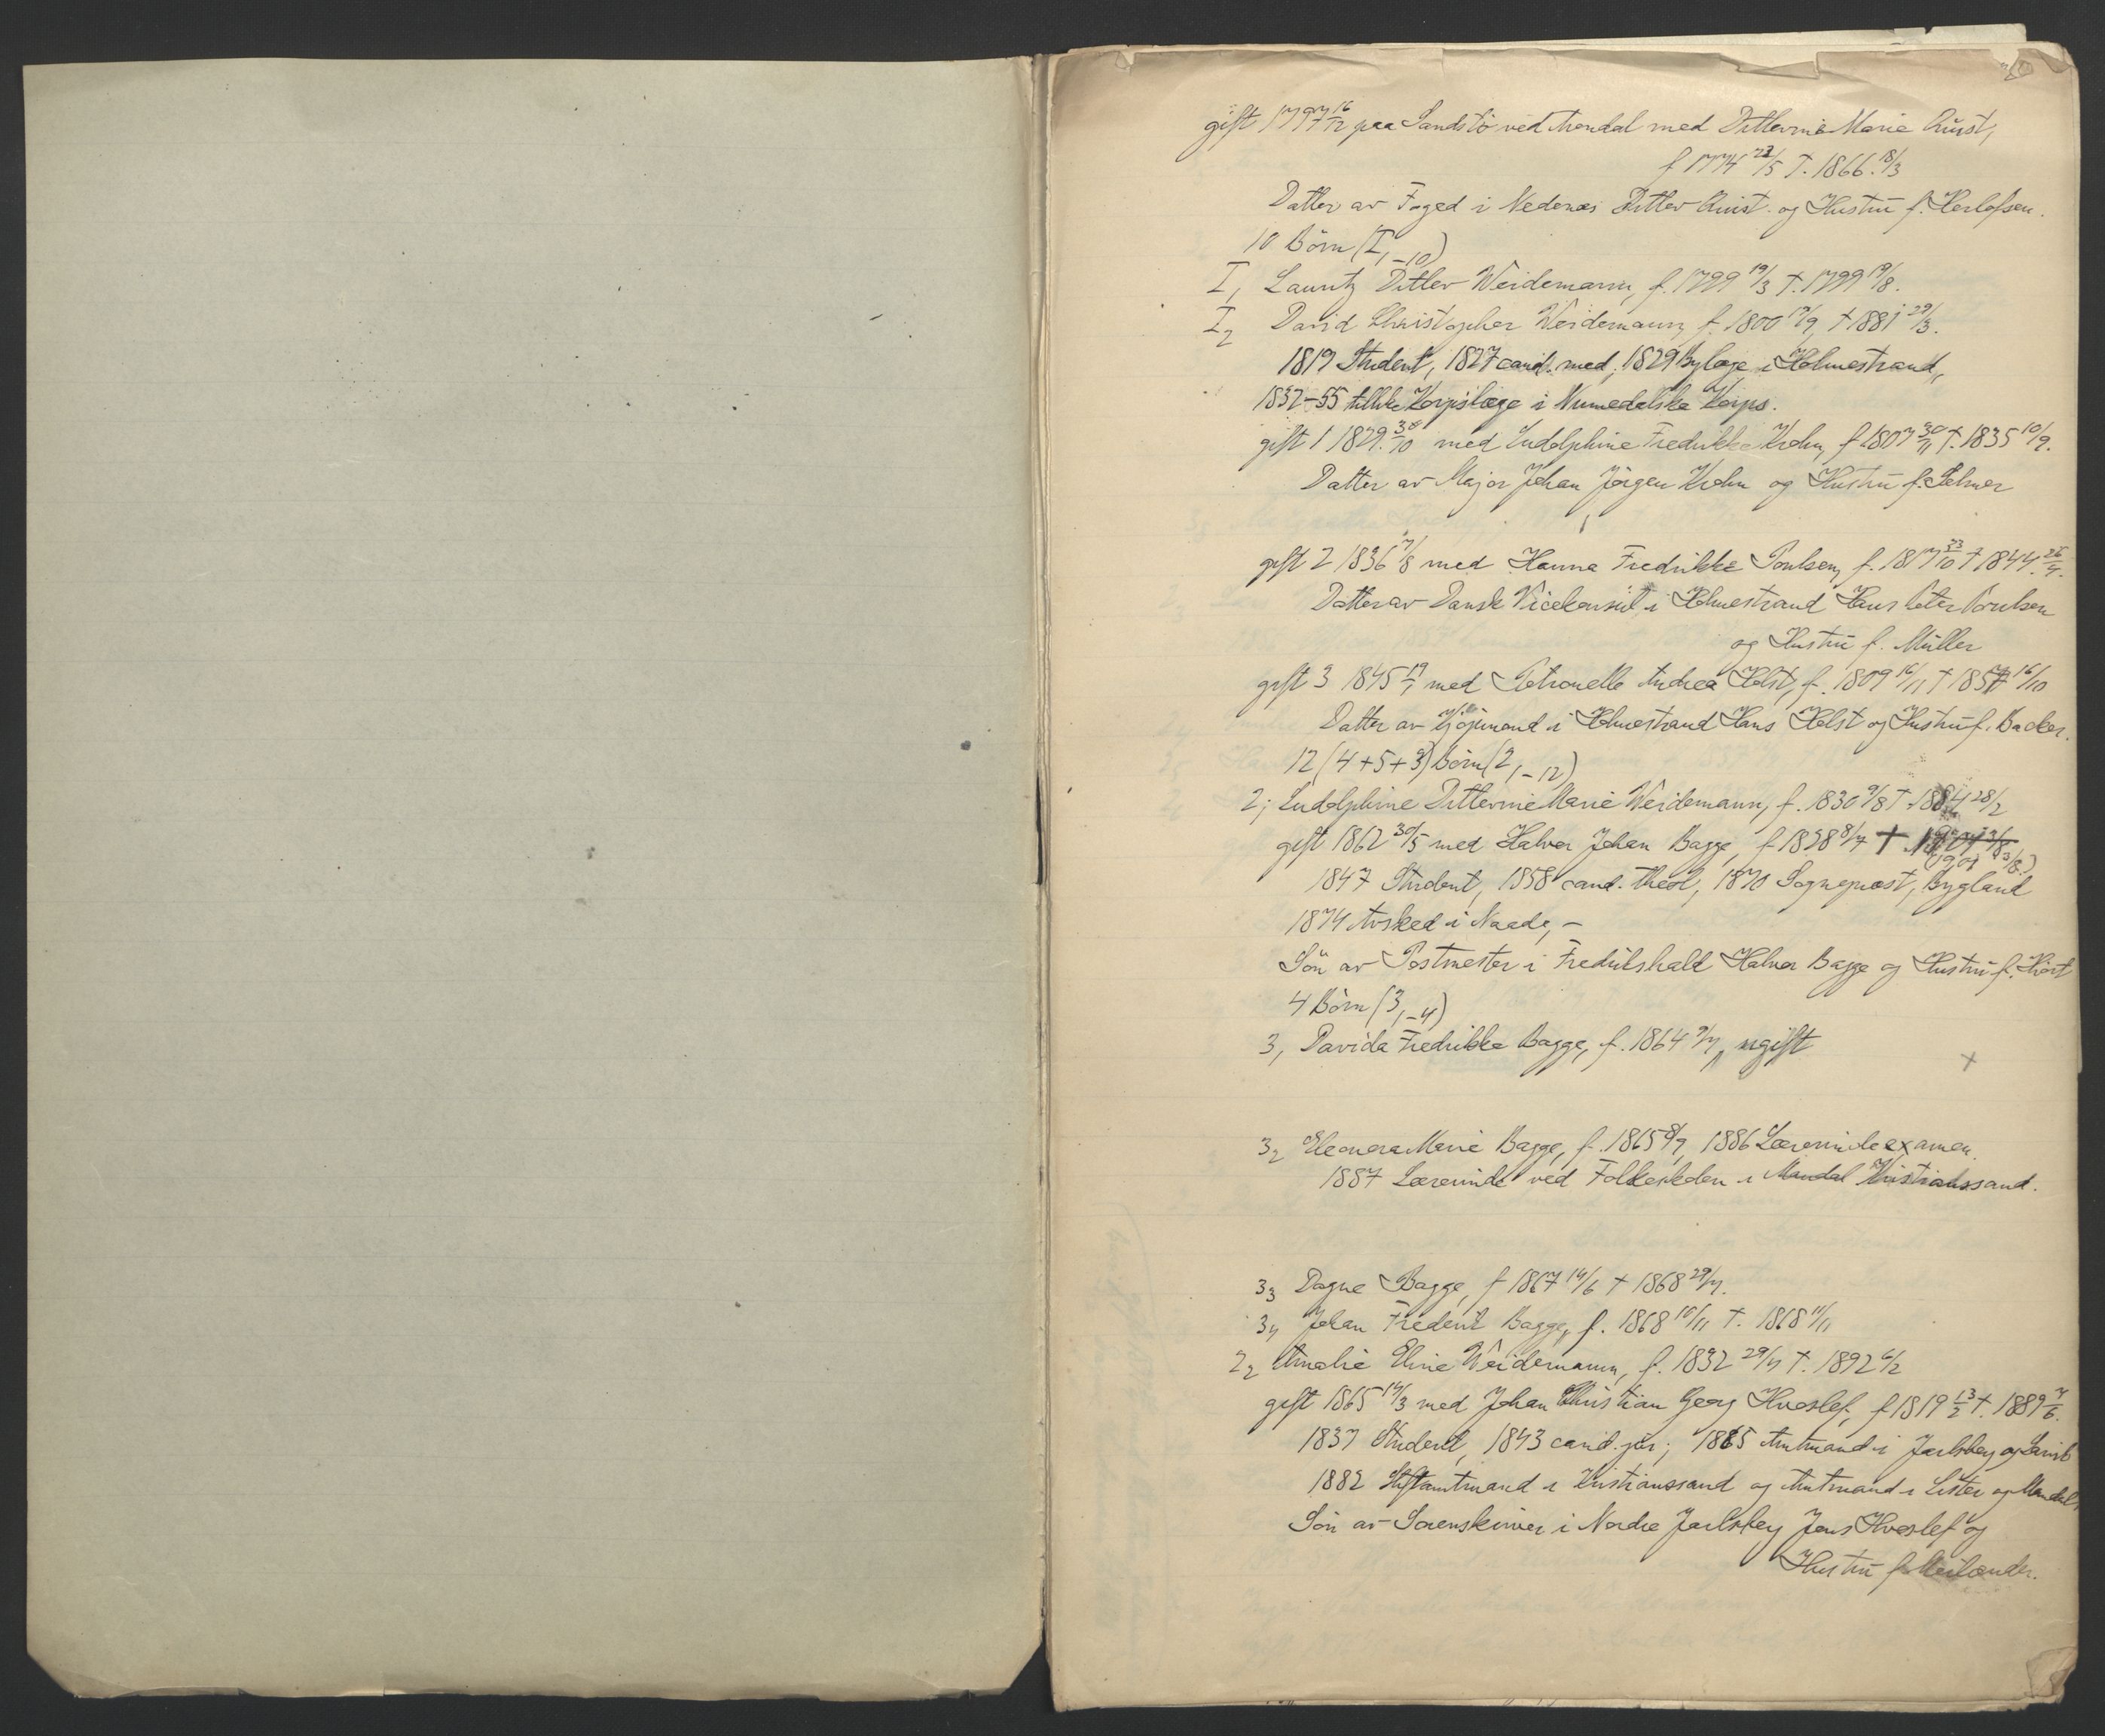 gift 1797 16/12 paa Sandstö ved Arendal med Ditlevine Marie Quist,
f 1774 22/5 †. 1866. 18/3
Datter av Foged i Nedenæs Ditlev Quist. og Hustru f. Herlofsen.
10 Börn (I, 1–10)
I, Lauritz Ditlev Weidemann, f. 1799 19/3 †. 1799 19/8.
I2 David Christopher Weidemann, f. 1800 19/9, † 1881 29/3.
1819 Student, 1827 cand. med; 1829 Bylæge i Holmestrand,
1852–55 tillike Korpslæge i Numedalske Korps.
gift 1 1829. 30/10 med Ludolphine Fredrikke Krohn, f 1807 30/11 †. 1835 10/9.
Datter av Major Johan Jörgen Krohn og Hustru f. Selmer
gift 2 1836 7/8 med Hanna Fredrikke Poulsen, f. 1817 23/10 † 1844.
Datter av Dansk Vicekonsul i Holmestrand Hans Peter Poulsen
og Hustru f. Müller
gift 3 1845 med Petronelle Andrea Holst, f. 1809 16/11 † 1857 16/10
Datter av Kjöpmand i Holmestrand Hans Holst og Hustru f. Backer.
12 (4+5+3) Börn (2, 1–12)
2, Ludolphine Ditlevine Marie Weidemann, f. 1830 9/8 † 1884 28/2
gift 1862 30/5 med Halvor Johan Bagge, f 1828 8/7 †
1847 Student, 1858 cand. theol, 1870 Sogneprest, Bygland
1874 Avsked i Naade, –
Sön av Postmester i Fredrikshald Halvor Bagge og Hustru f.
4 Börn (3, 1–4)
3, Davida Fredrikke Bagge, f. 1864 9/7, ugift
32 Eleonora Marie Bagge, f. 1865 8/9, 1886 Lærerindeexamen.
1887 Lærerinde ved Folkeskolen i Mandal Kristianssand.
33 Dagne Bagge, f 1867 14/6 † 1868 29/7.
34 Johan Frederik Bagge, f. 1868 10/11 †. 1868 11/11
22 Amalie Eline Weidemann, f. 1832 29/7 †. 1892 6/2
gift 1865 14/3 med Johan Christian Georg Hvoslef, f 1819 13/2 †. 1889 7/6.
1837 Student, 1843 cand. jur; 1865 Amtmand i Jarlsberg og Laurvik
1882 Stiftamtmand i Kristianssand og Amtmand i Lister og Mandal,
Sön av Sorenskriver i Nordre Jarlsberg Jens Hvoslef og
Hustru f. Meilænder.